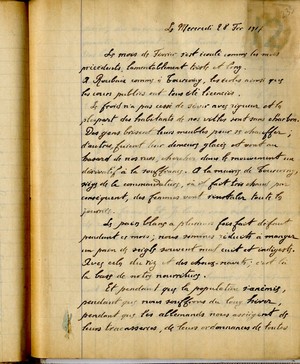 Le Mercredi 28 Fév 1917
Le mois de Février s'est écoulé comme les mois
précédents, lamentablement triste et long.
A Roubaix comme à Tourcoing, les écoles ainsi que
les cours publics ont tous été licenciés.
Le froid n'a pas cessé de sévir avec rigueur et la
plupart des habitants de nos villes sont sans charbon.
Des gens brisent leurs meubles pour se chauffer;
d'autres, fuient leur demeure glacée et vont au
hasard de nos rues, chercher dans le mouvement un
dérivatif à la souffrance. A la mairie de Tourcoing,
siège de la commandature, où il fait très chaud par
conséquent, des femmes vont s'installer toute la
journée.
Le pain blanc a plusieurs fois fait défaut
pendant ce mois; nous sommes réduits à manger
un pain de seigle souvent mal cuit et indigeste.
Avec cela du riz et des choux-navets: c'est là
la base de notre nourriture.
Et pendant que la population s'anémie,
pendant que nous souffrons du long hiver,
pendant que les allemands nous accablent de
leurs tracasseries, de leurs ordonnances de toutes